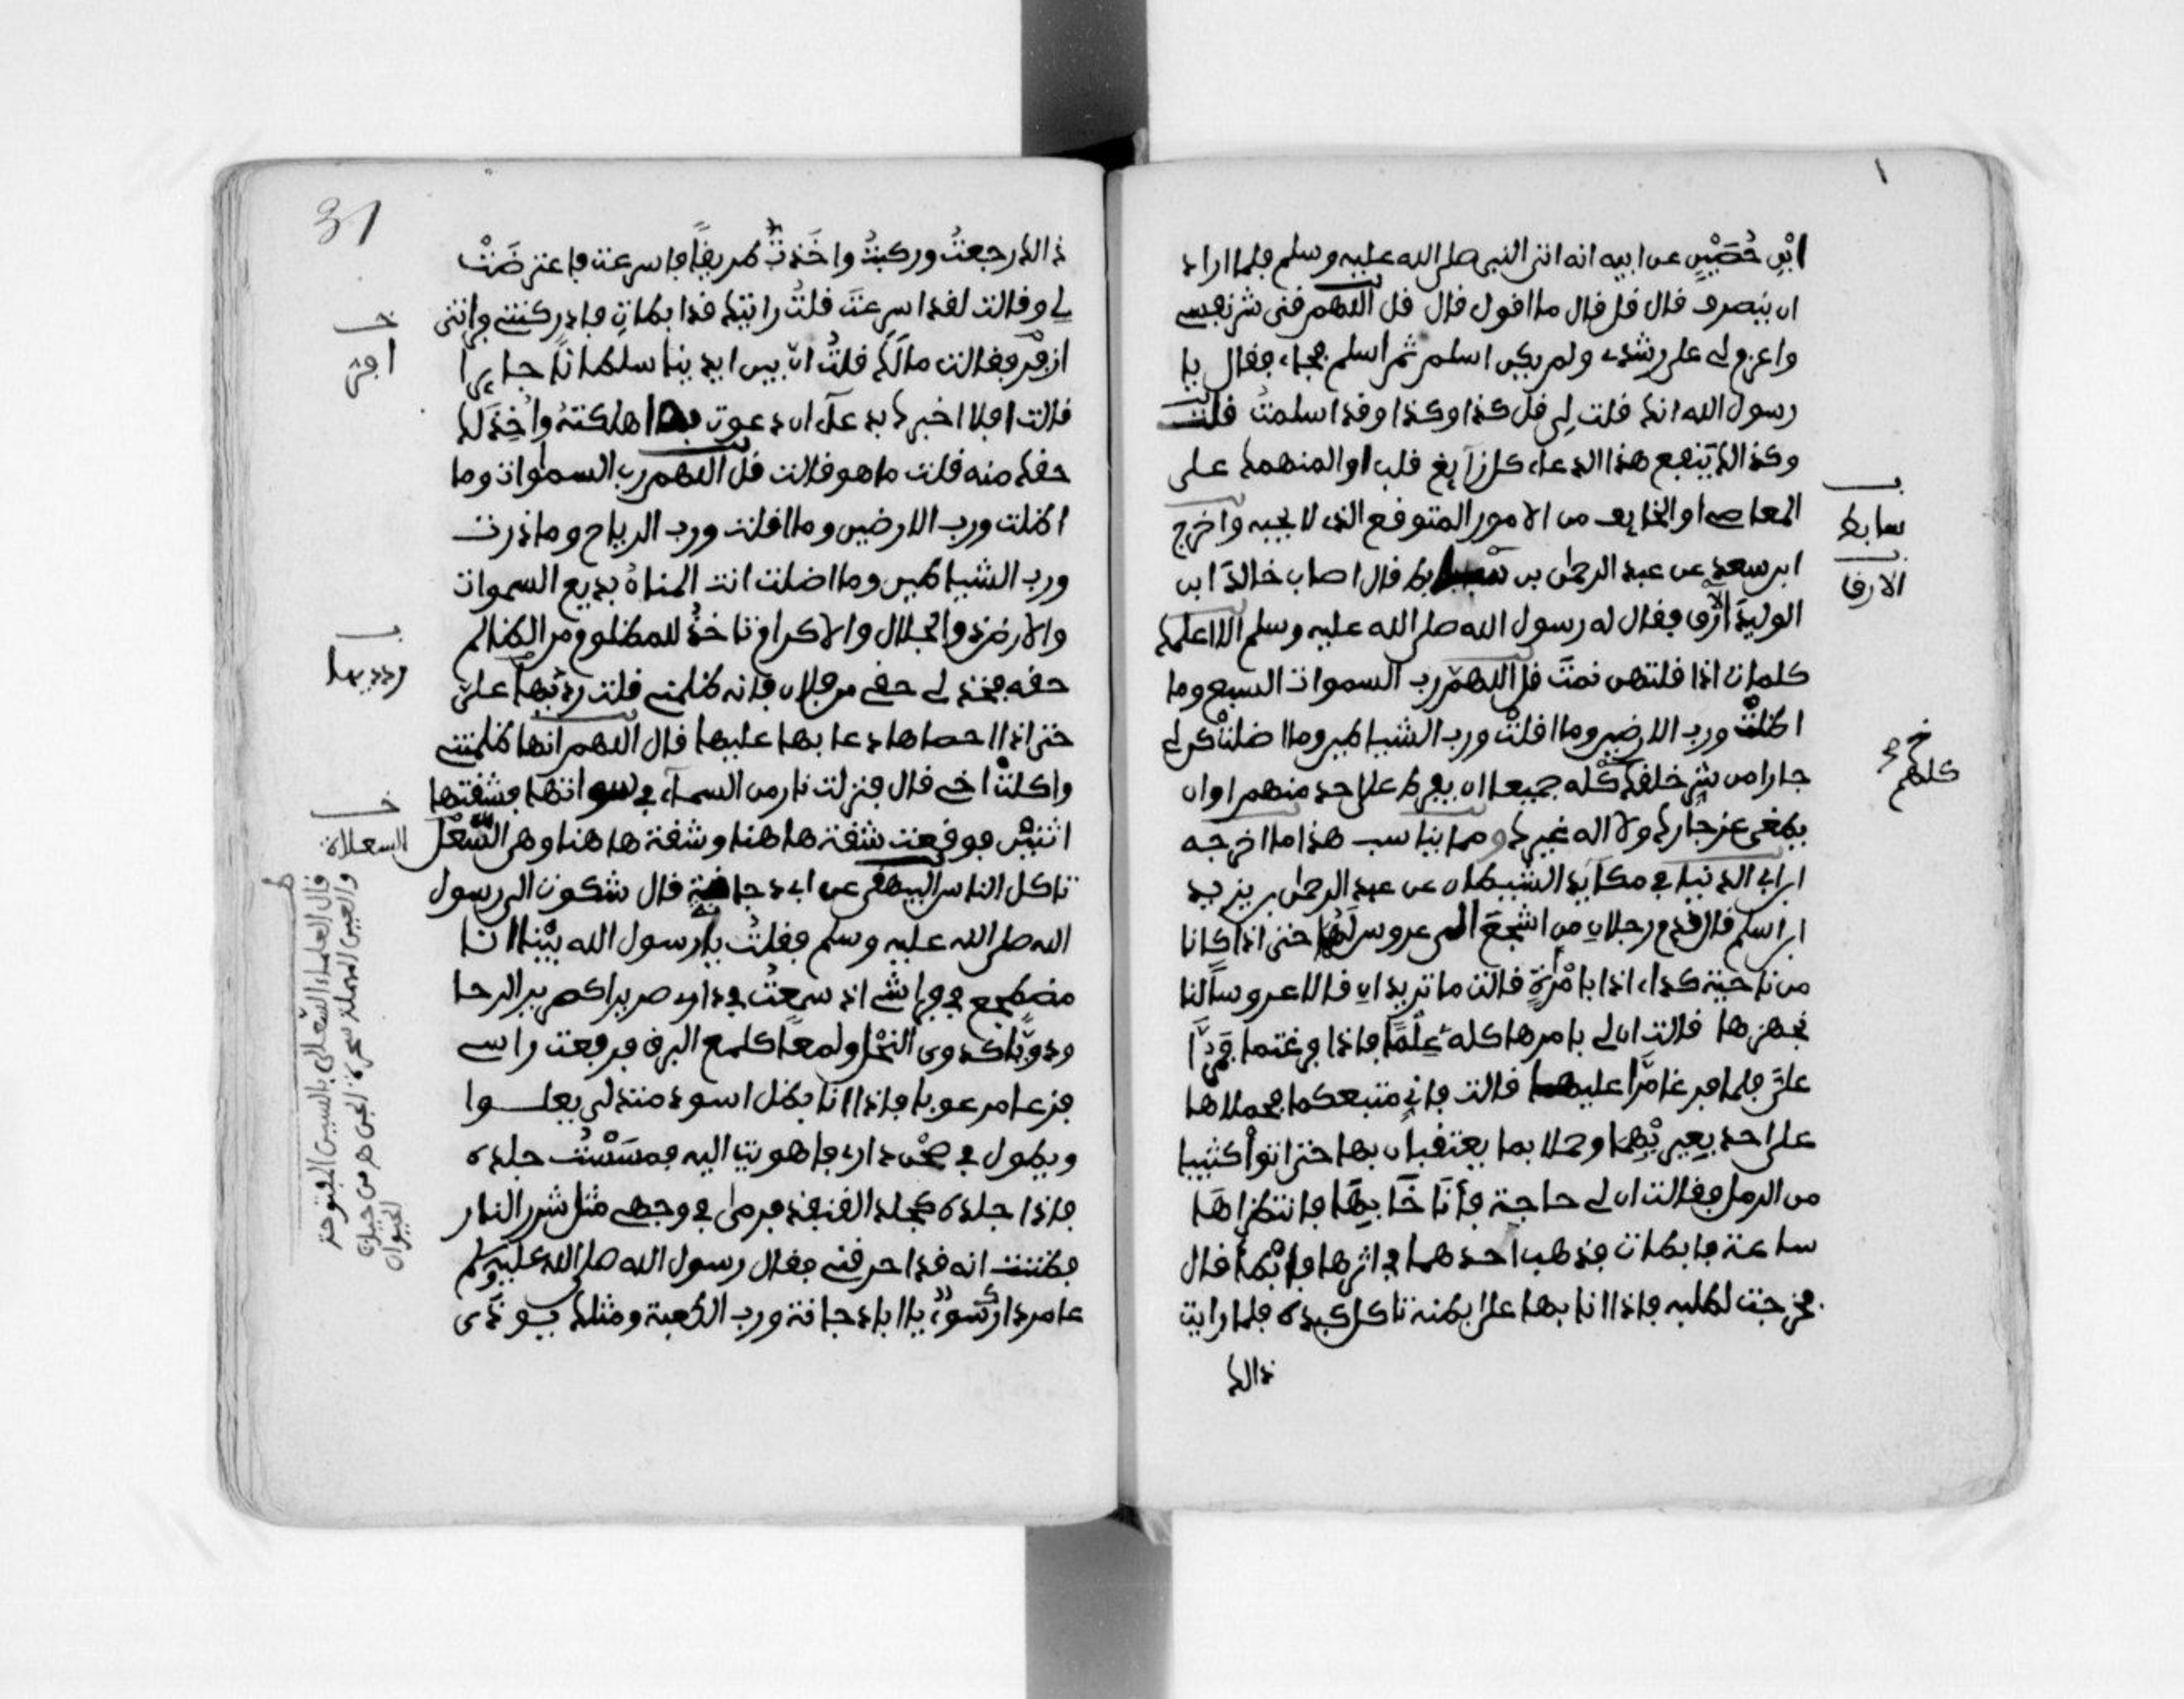 ابْن حُصَيْنٍ عن ابيه انه اتى النبي صلى الله عليه وسلم فلما اراد
ان ينصرف قال قل قال ما اقول قال قل اللهم قنى شر نفسي
واعزم لي على رشدي ولم يكن اسلم ثم اسلم فجاء فقال يا
رسول الله انك قلت لِي قل كذا وكذا وقد اسلمتُ قلت
وكذالك يَنفع هذا الدعاء كل زآيغ قلب او المنهمك على
المعاصي او الخايف من الامور المتوقع الذي لا يحبه واخرج
ابن سعد عن عبد الرحمن بن سابط قال اصاب خالدَ ابن
الوليد ارق فقال له رسول الله صلى الله عليه وسلم الا اعلمك
كلمات اذا قلتهن نمتَ قل اللهمّ رب السموات السبع وما
اظلتْ ورب الارضين وما اقلتْ ورب الشياطين وما اضلتْ كن لي
جارا من شرِّ خلقك كُلّه جميعا ان يفرط على احد منهم او ان
يطغى عز جارك ولا اله غيرك ومما يناسب هذا ما اخرجه
ابن ابي الدنيا في مكآيد الشيطان عن عبد الرحمن بن يزيد
ابن اسلم قال قدم رجلان من اشجعَ الى عروس لَهُما حتى اذا كانا
من ناحية كداء اذا بامْرأةٍ قالت ما تريدانِ قالا عروساً لنا
نجهزها قالت ان لي بامرها كله عِلْمًا فاذا فرغتما فمُرَّا
علىَّ فلما فرغا مَرَّا عليها قالت فإني متبعكما فحملاها
على احد بعِيريْهِما وحملا بما يعتقبان بها حتى اتوْا كثيبا
من الرمل فقالت ان لي حاجة فأنَاخَا بِهَا فانتظراها
ساعة فابطات فذهب احدهما في اثرها فابْطأ قال
فخرجت لطلبه فاذا انا بها على بطنه تاكل كبده فلما رايت
ذالك
سابط
الارق
كلهم
31
ذالك رجعتُ وركبتُ واخَذتُ طريقًا فاسرعت فاعترضَتْ
لي وقالت لقد اسرعتَ قلتُ رايتك قد ابطاتِ فادركتني وانني
ازفر فقالت ما لَكَ قلتُ انّ بين ايدينا سلطانًا جايرا
قالت افلا اخبرك بدعآء ان دعوت به اهلكتهُ واُخِذَ لك
حقك منه قلت ما هو قالت قل اللهم رب السموات وما
اظلت ورب الارضين وما اقلت ورب الرياح وما ذرت
ورب الشياطين وما اضلت انت المنانُ بديع السموات
والارض ذو الجلال والاكرام تاخذُ للمظلوم من الظالم
حقه فخذ لي حقي من فلان فانه ظلمني قلت ردّيها علىّ
حتى اذا احصاها دعا بها عليها قال اللهم انها ظلمتني
واكلتْ اخي قال فنزلت نار من السمآء في سواتها فشقتها
اثنيْن فوقعت شقة هاهنا وشقة هاهنا وهي السّعْلى
تاكل الناس البيهقي عن ابي دجانة قال شكوت الى رسول
الله صلى الله عليه وسلم فقلتُ يا رسول الله بيْنا انا
مضطجع في فراشي اذ سمعتُ في داري صريرا كصرير الرحا
ودوِيًّا كدوي النحْل ولمعًا كلمع البرق فرفعت راسي
فزعا مرعوبا فاذا انا بظل اسود متدلى يعلوا
ويطول في صحْن داري فاهويت اليه فمسَسْتُ جلده
فاذا جلده كجلد القنفذ فرمى في وجهي مثل شرر النار
فظننت انه قد احرقني فقال رسول الله صلى الله عليه وسلم
عامر دارك سوءٍ يا ابا دجانة ورب الكعبة ومثلك يوذى
افر
ردديها
السعلاة
قال العلماء السّعلى بالسين المفتوحة
والعين المهملة سحرة الجن هي من
الحيوان